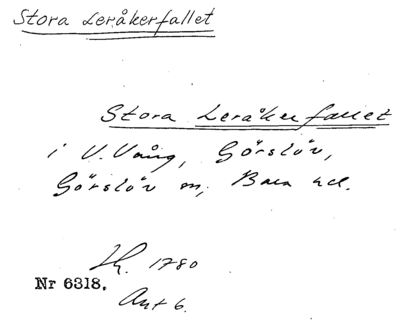 Stora Leråkerfallet
Stora Leråkerfallet
i V. Vång, Görslöv,
Görslöv sn, Bara hd.
Sk. 1780
Nr 6318.
Akt 6.